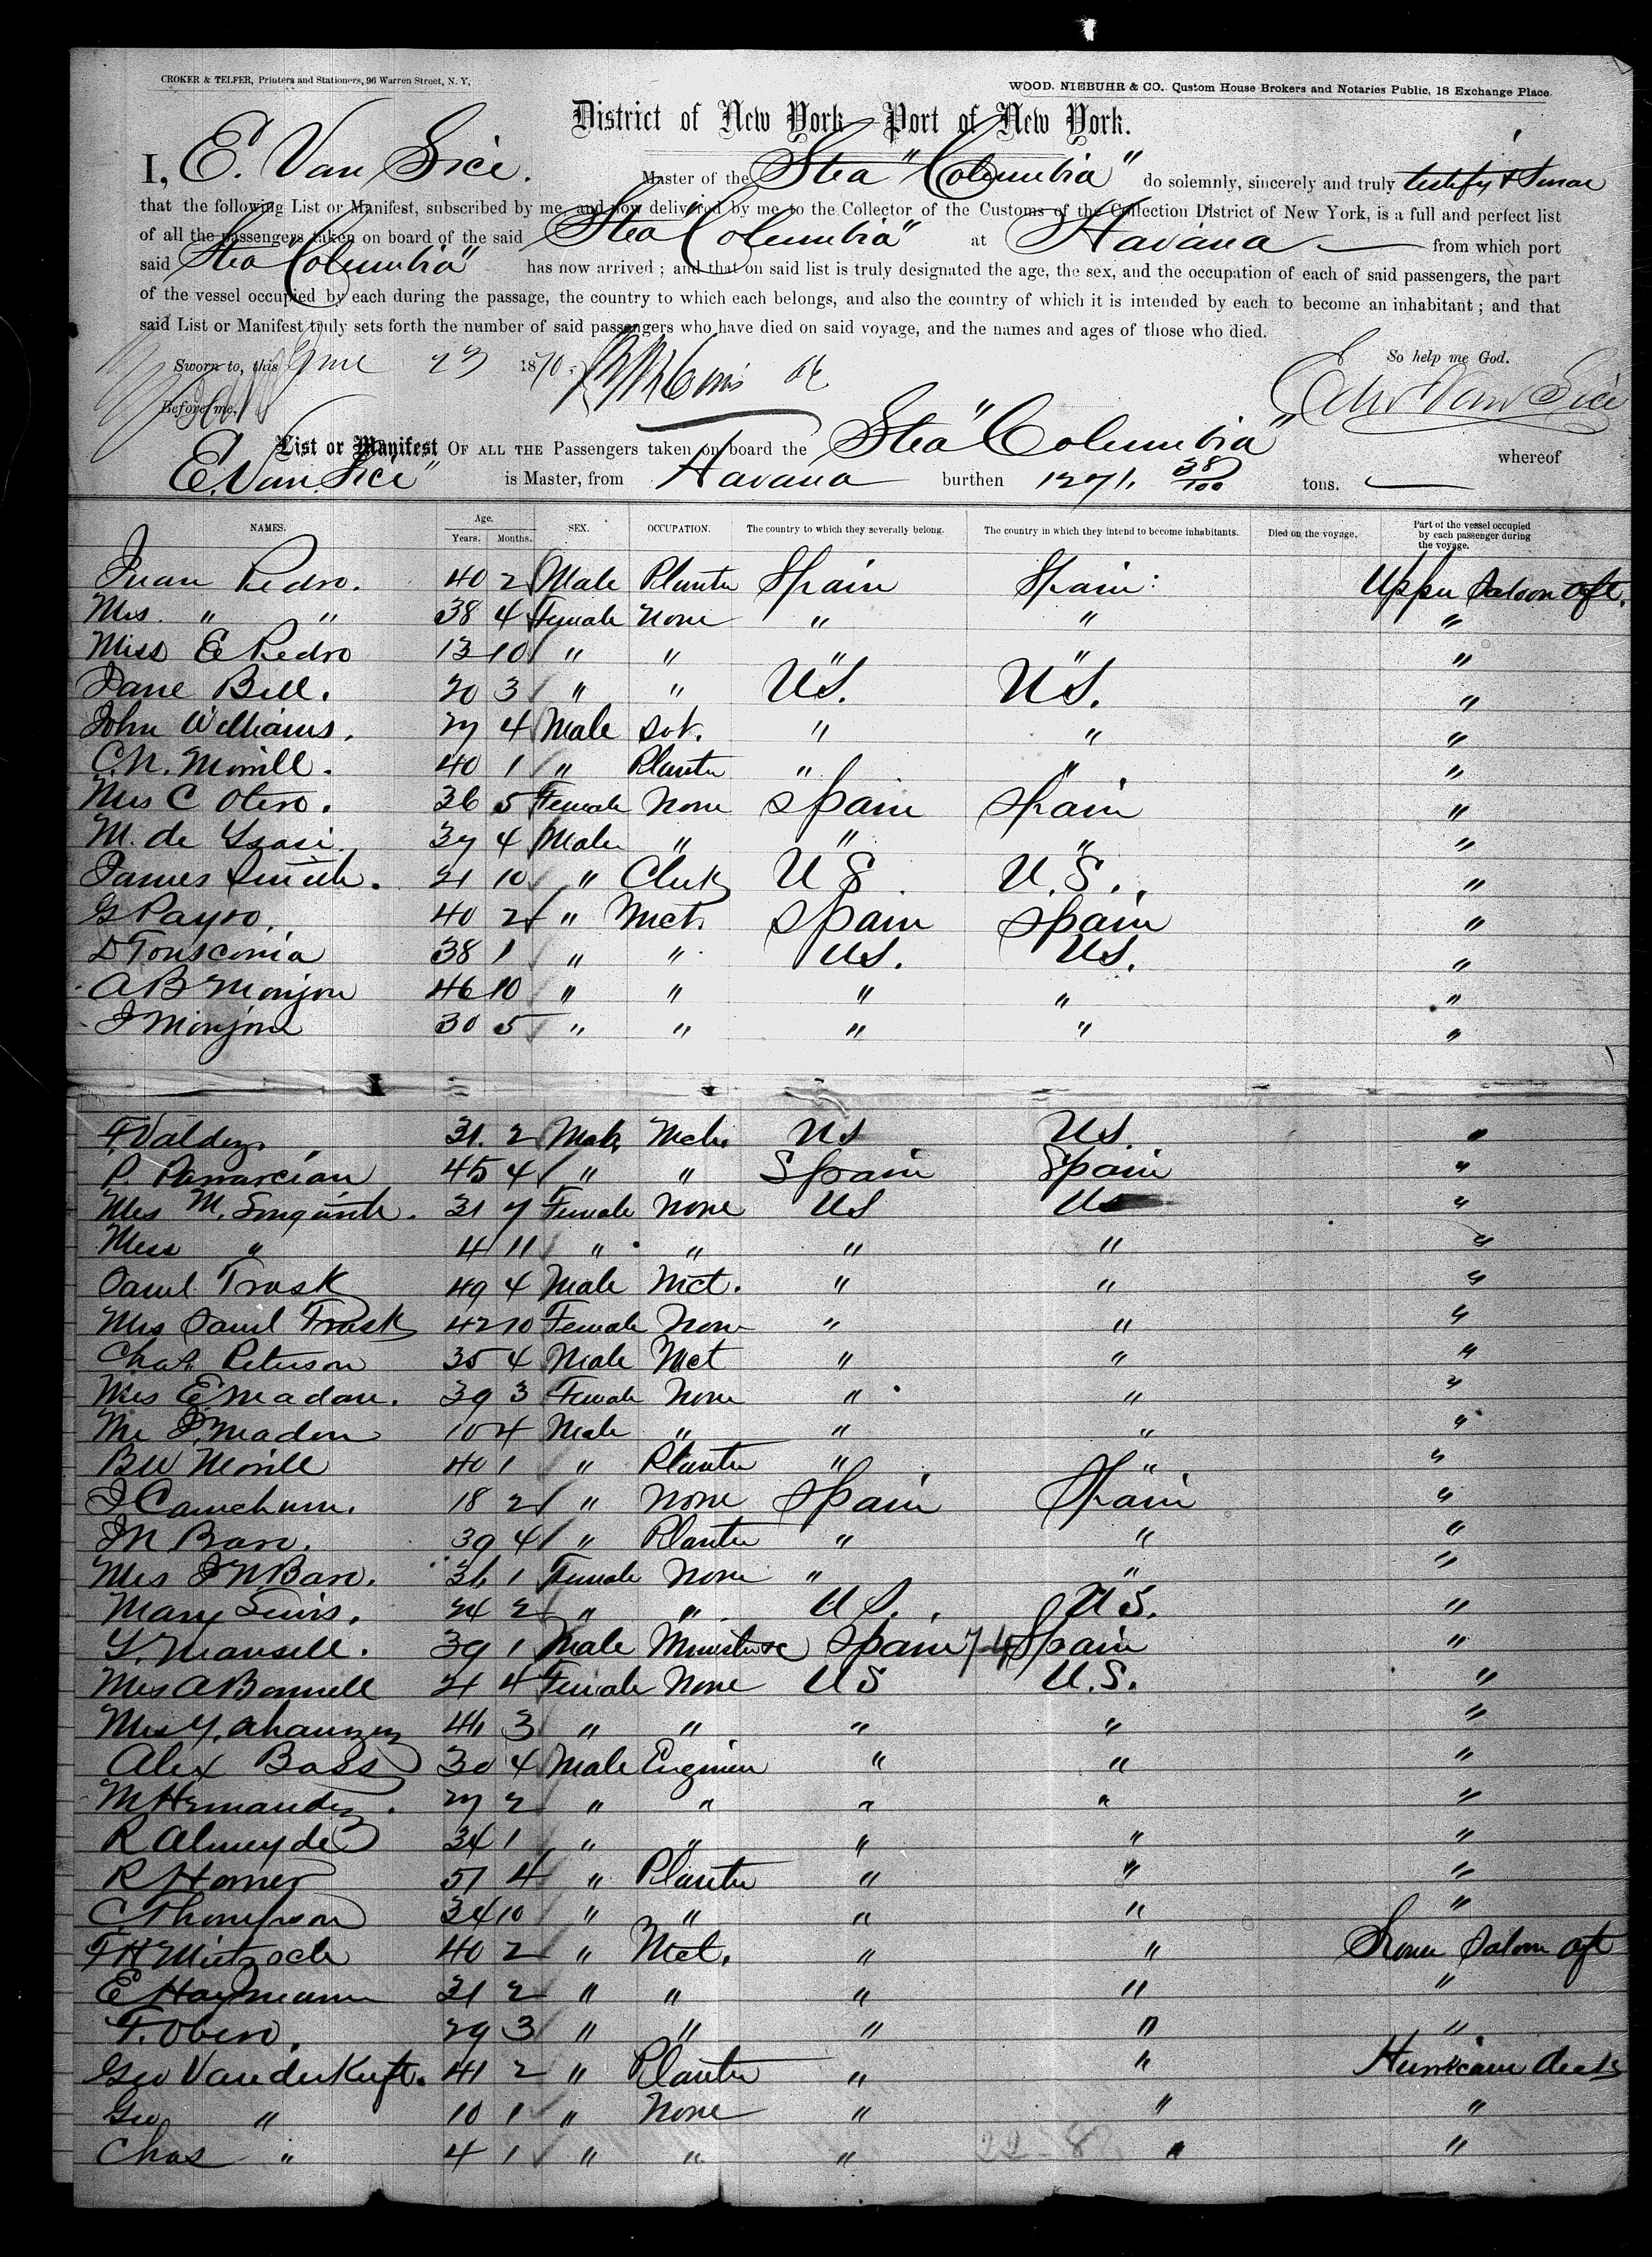 CROKER & TELFER, Printers and Stationers, 96 Warren Street, N. Y.
WOOD. NIEBUHR & CO. Custom House Brokers and Notaries Public, 18 Exchange Place.
District of New York - Port of New York.
I, E. Van Sice. Master of the Stea "Columbia" do solemnly, sincerely and truly testify & swear
that the following List or Manifest, subscribed by me, and now delivered by me to the Collector of the Customs of the Collection District of New York, is a full and perfect list
of all the passengers taken on board of the said Stea Columbia" at Havana from which port
said Stea Columbia" has now arrived ; and that on said list is truly designated the age, the sex, and the occupation of each of said passengers, the part
of the vessel occupied by each during the passage, the country to which each belongs, and also the country of which it is intended by each to become an inhabitant ; and that
said List or Manifest truly sets forth the number of said passengers who have died on said voyage, and the names and ages of those who died.
Sworn to, this June 23 1870. So help me God.
Before me, Edw Van Sice
List or Manifest OF ALL THE Passengers taken on board the Stea "Columbia" whereof
E. Van Sice" is Master, from Havana burthen 1271. 38/100 tons.
NAMES. Age. Years. Months. SEX. OCCUPATION. The country to which they severally belong. The country in which they intend to become inhabitants. Died on the voyage. Part of the vessel occupied by each passenger during the voyage.
Juan Pedro. 40 2 Male Planter Spain Spain Upper Saloon aft.
Mrs. " " 38 4 Female None " " "
Miss E Pedro 13 10 " " " " "
Jane Bell. 20 3 " " U.S. U.S. "
John Williams. 27 4 Male " " "
C.N. Morrill. 40 1 " Planter " " "
Mrs C Otero. 36 5 Female None Spain Spain "
M. de 37 4 Male " " " "
James Smith. 21 10 " Clerk U S U.S. "
G Payro. 40 2 " Mct. Spain Spain "
D 38 1 " " U.S. U.S. "
A B Monjon 46 10 " " " " "
J Monjon 30 5 " " " " "
F Valdez. 31 2 Male US US "
P. 45 4 " " Spain Spain "
Mrs M. 31 7 Female None US US "
Miss " 4 11 " " " " "
Saml Trask 49 4 Male Mct. " " "
Mrs Saml Trask 42 10 Female None " " "
Chas. Peterson 35 4 Male Mct " " "
Mrs E Madan. 39 3 Female None " " "
Mr J. Madan 10 4 Male " " " "
B W Morrill 40 1 " Planter " " "
J 18 2 " None Spain Spain "
J N Baro. 39 4 " Planter " " "
Mrs J N Baro. 36 1 Female None " " "
Mary Lewis. 24 2 " " U S. U S. "
Y. Mansell. 39 1 Male Spain 74 Spain "
Mrs A Bonnell 21 4 Female None U S U.S. "
Mrs Y. 3 " " " " "
Alex Bass 30 4 Male Engineer " " "
M Hernandez. 27 2 " " " " "
R Almeyde 34 1 " " " " "
R Horner 51 4 " Planter " " "
C. Thompson 34 10 " " " " "
F H 40 2 " Mct. " " Lower Saloon aft
E Haymann 31 2 " " " " "
F. Obero. 29 3 " " " " "
Geo Vanderkuft. 41 2 " Planter " " Hurricane deck
Geo " 10 1 " None " " "
Chas " 4 1 " " " " "